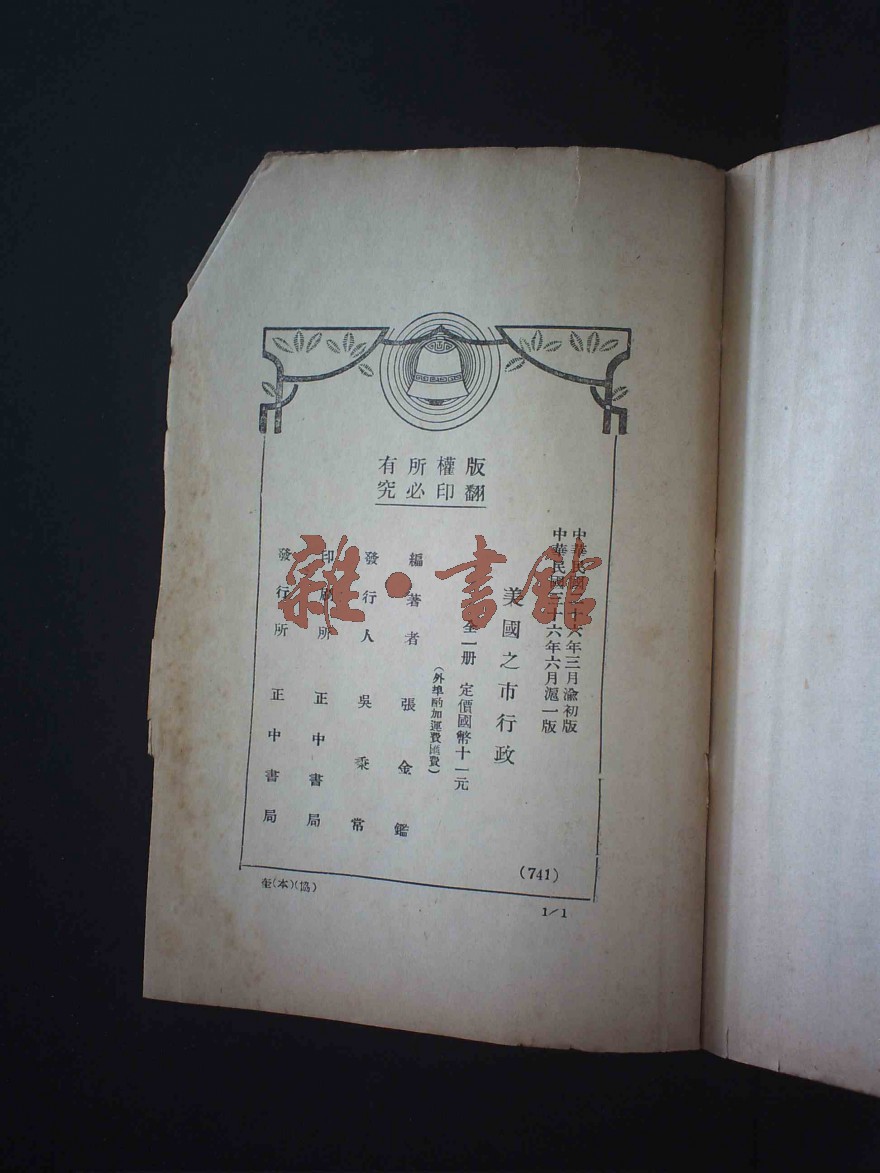 版權所有
翻印必究
中華民國二十六年三月渝初版
中華民國三十六年六月滬一版
美國之市行政
全一册 定價國幣十一元
(外埠酌加運費匯費)
編著者 張金鑑
發行人 吳秉常
印刷所 正中書局
發行所 正中書局
(741)
(本)(協)
1/1
雜·書館